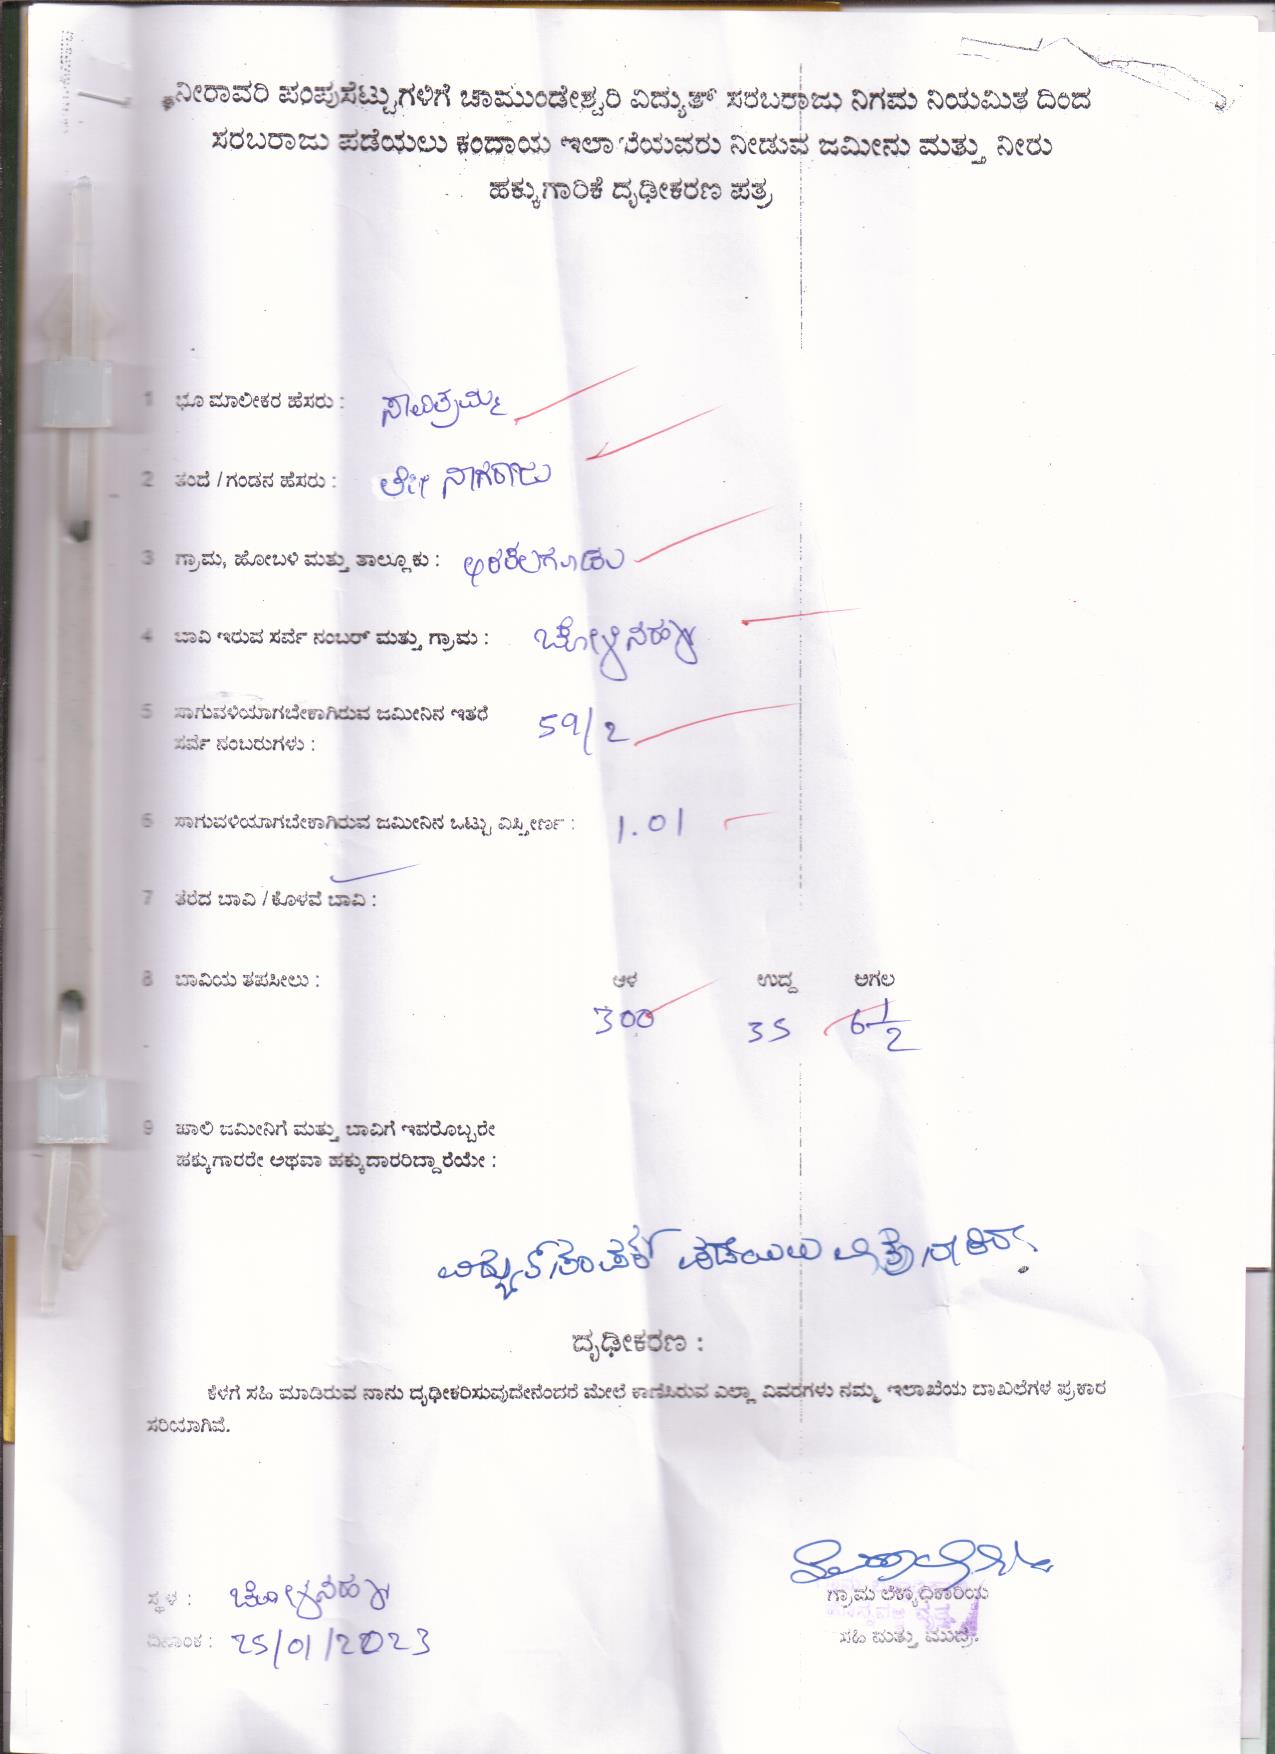 ನೀರಾವರಿ ಪಂಪುಸೆಟ್ಟುಗಳಿಗೆ ಚಾಮುಂಡೇಶ್ವರಿ ವಿದ್ಯುತ್ ಸರಬರಾಜು ನಿಗಮ ನಿಯಮಿತ ದಿಂದ
ಸರಬರಾಜು ಪಡೆಯಲು ಕಂದಾಯ ಇಲಾಖೆಯವರು ನೀಡುವ ಜಮೀನು ಮತ್ತು ನೀರು
ಹಕ್ಕುಗಾರಿಕೆ ದೃಢೀಕರಣ ಪತ್ರ
1 ಭೂ ಮಾಲೀಕರ ಹೆಸರು : ಸಾವಿತ್ರಮ್ಮ
2 ತಂದೆ / ಗಂಡನ ಹೆಸರು : ಲೇ॥ ನಾಗರಾಜು
3 ಗ್ರಾಮ, ಹೋಬಳಿ ಮತ್ತು ತಾಲ್ಲೂಕು : ಅರಕಲಗೂಡು
4 ಬಾವಿ ಇರುವ ಸರ್ವೆ ನಂಬರ್ ಮತ್ತು ಗ್ರಾಮ :
5 ಸಾಗುವಳಿಯಾಗಬೇಕಾಗಿರುವ ಜಮೀನಿನ ಇತರೆ
ಸರ್ವೆ ನಂಬರುಗಳು : 59/2
6 ಸಾಗುವಳಿಯಾಗಬೇಕಾಗಿರುವ ಜಮೀನಿನ ಒಟ್ಟು ವಿಸ್ತೀರ್ಣ : 1.01
7 ತೆರೆದ ಬಾವಿ / ಕೊಳವೆ ಬಾವಿ :
8 ಬಾವಿಯ ತಪಸೀಲು : ಆಳ ಉದ್ದ ಅಗಲ
300 35 6 1/2
9 ಖಾಲಿ ಜಮೀನಿಗೆ ಮತ್ತು ಬಾವಿಗೆ ಇವರೊಬ್ಬರೇ
ಹಕ್ಕುಗಾರರೇ ಅಥವಾ ಹಕ್ಕುದಾರರಿದ್ದಾರೆಯೇ :
ವಿದ್ಯುತ್ ಸಂಪರ್ಕ ಪಡೆಯಲು ಮಾತ್ರ
ದೃಢೀಕರಣ :
ಕೆಳಗೆ ಸಹಿ ಮಾಡಿರುವ ನಾನು ದೃಢೀಕರಿಸುವುದೇನೆಂದರೆ ಮೇಲೆ ಕಾಣಿಸಿರುವ ಎಲ್ಲಾ ವಿವರಗಳು ನಮ್ಮ ಇಲಾಖೆಯ ದಾಖಲೆಗಳ ಪ್ರಕಾರ
ಸರಿಯಾಗಿವೆ.
ಗ್ರಾಮ ಲೆಕ್ಕಾಧಿಕಾರಿಯ
ಸಹಿ ಮತ್ತು ಮುದ್ರೆ.
ಸ್ಥಳ :
ದಿನಾಂಕ : 25/01/2023